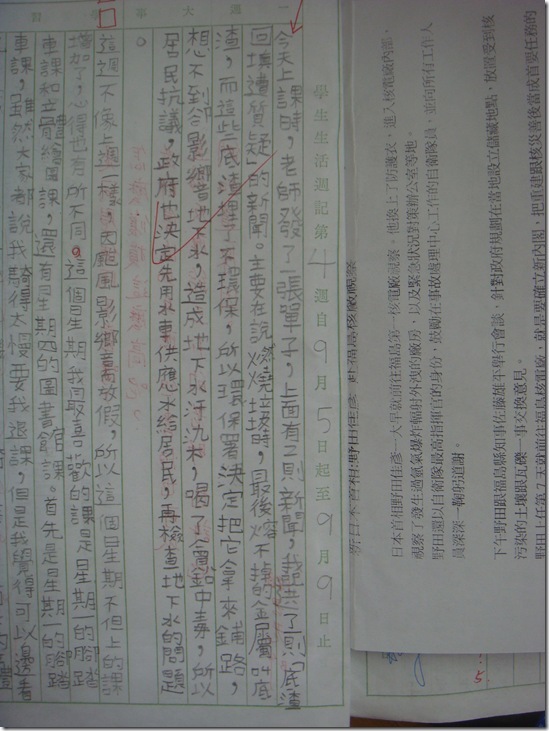 日本首相野田佳彥 赴福島核廠視察
日本首相野田佳彥一大早就前往福島第一核電廠視察。他換上了防護衣，進入核電廠內部，
視察了發生過氫氣爆炸輻射外洩的廠房，以及緊急狀況對策辦公室等地。
野田還以自衛隊最高指揮官的身份，並向所有工作人
員深深一鞠躬道謝。
下午野田跟福島縣知事佐藤雄平舉行會談，針對政府規劃在當地設立儲藏地點，放置受到核
污染的土壤跟瓦礫一事交換意見。
野田上任第7天就前往福島核電廠，就是要確立新內閣，把重建跟核災善後當成首要任務的
學生生活週記第4週自9月5日起至9月9日止
一週大事
今天上課時，老師發了一張單子，上面有二則新聞，我選了「底渣
回填遭質疑」的新聞。主要在說燃燒垃圾時，最後熔不掉的金屬叫底
渣，而這些底渣埋了不環保，所以環保署決定把它拿來鋪路，
想不到卻影響地下水，造成地下水汙染，喝了會鉛中毒，所以
居民抗議，政府也決定先用水車供應水給居民，再檢查地下水的問題
。
這週不像上週一樣因颱風影響而放假，所以這個星期不但上的課
增加了，心得也有所不同。這個星期我最喜歡的課是星期一的腳踏
車課和立體繪圖課，還有星期四的圖書館課。首先是星期一的腳踏
車課，雖然大家都說我騎得太慢要我退課，但是我覺得可以邊看